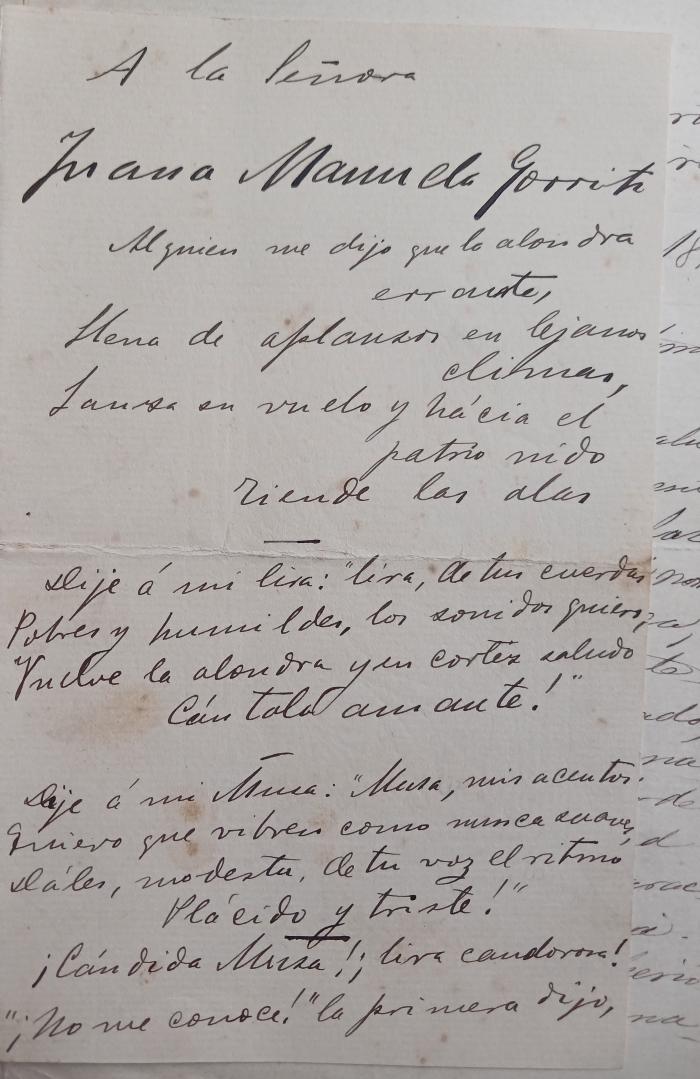 A la Señora
Juana Manuela Gorriti
Alguien me dijo que la alondra
errante,
Llena de aplausos en lejanos
climas,
Lanza su vuelo y hácia el
patrio nido
Tiende las alas
Dije á mi lira: "lira, de tus cuerdas
Pobres y humildes, los sonidos quiero,
Vuelve la alondra y en cortés saludo
Cántala amante!"
Dije á mi Musa: "Musa, mis acentos
Quiero que vibren como nunca suaves,
Dáles, modesta, de tu voz el ritmo
Plácido y triste!"
¡Cándida Musa!; lira candorosa!
"¡No me conoce!" la primera dijo,